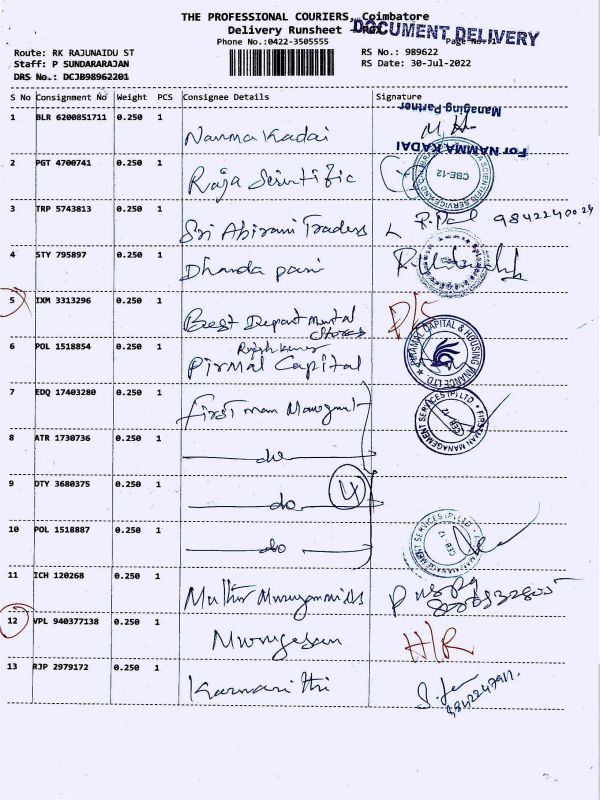 THE PROFESSIONAL COURIERS, Coimbatore
Delivery Runsheet - POX
DOCUMENT DELIVERY
Phone No.:0422-3505555
Page No.:1
Route: RK RAJUNAIDU ST
RS No.: 989622
Staff: P SUNDARARAJAN
RS Date: 30-Jul-2022
DRS No.: DCJB98962201
S No Consignment No Weight PCS Consignee Details Signature
Managing Partner
1 BLR 6200851711 0.250 1 Namma Kadai
For NAMMA KADAI
2 PGT 4700741 0.250 1 Raja Scientific
CBE-12
3 TRP 5743813 0.250 1 Sri Abirami Traders
4 STY 795897 0.250 1 Dhanda pani
5 IXM 3313296 0.250 1 Best Department mental stores D/C
6 POL 1518854 0.250 1 Rajesh kumar
Pirmal Capital
PIRAMAL CAPITAL & HOUSING FINANCE LTD
7 EDQ 17403280 0.250 1 First man Managmet
FIRSTMAN MANAGEMENT SERVICES (P) LTD
8 ATR 1730736 0.250 1 do
9 DTY 3680375 0.250 1 do 4
10 POL 1518887 0.250 1 do
11 ICH 120268 0.250 1
12 VPL 940377138 0.250 1 Murugesan H/R
13 RJP 2979172 0.250 1